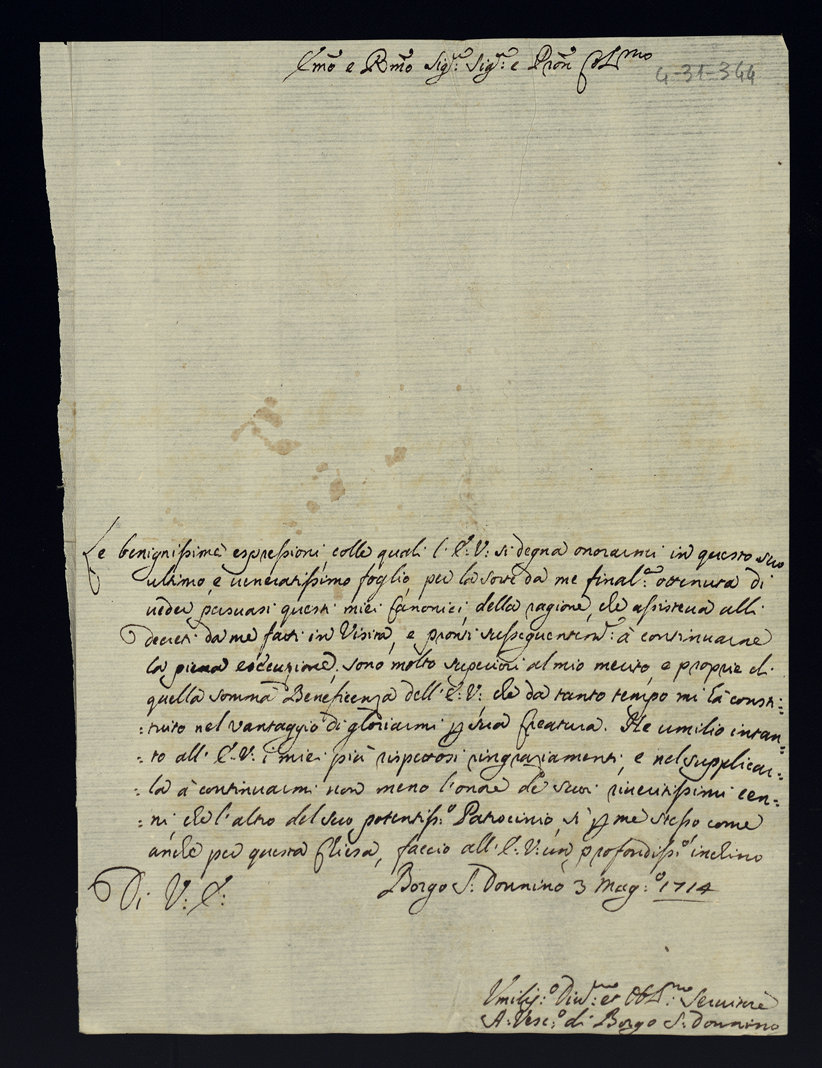 Emo e Rmo Sigr: Sigr: e Pron Colmo
4-31-344
Le benignissime espressioni, colle quali l'E:V: si degna onorarmi in questo suo
ultimo, e veneratissimo foglio, per la sorte da me final:e ottenuta di
veder persuasi questi miei Canonici della ragione, che assisteva alli
Decreti da me fatti in Visita, e pronti a continuarne
la piena esecuzione, sono molto superiori al mio merito, e proprie di
quella somma Beneficenza dell'E:V: che da tanto tempo mi hà consti-
:tuito nel vantaggio di gloriarmi p sua Creatura. Ne umilio intan-
:to all'E:V: i miei più rispettosi ringraziamenti, e nel supplicar-
:la à continuarmi non meno l'onore de' suoi riveritissimi cen-
:ni che l'altro del suo potentiss:o Patrocinio, sì p me stesso come
anche per questa Chiesa, faccio all'E:V: un profondiss:o inchino
Di V: E: Borgo S: Donnino 3 Mag:o 1714
Umiliss:o Div:mo et Obl:mo Servitore
A: Vesc:o di Borgo S: Donnino